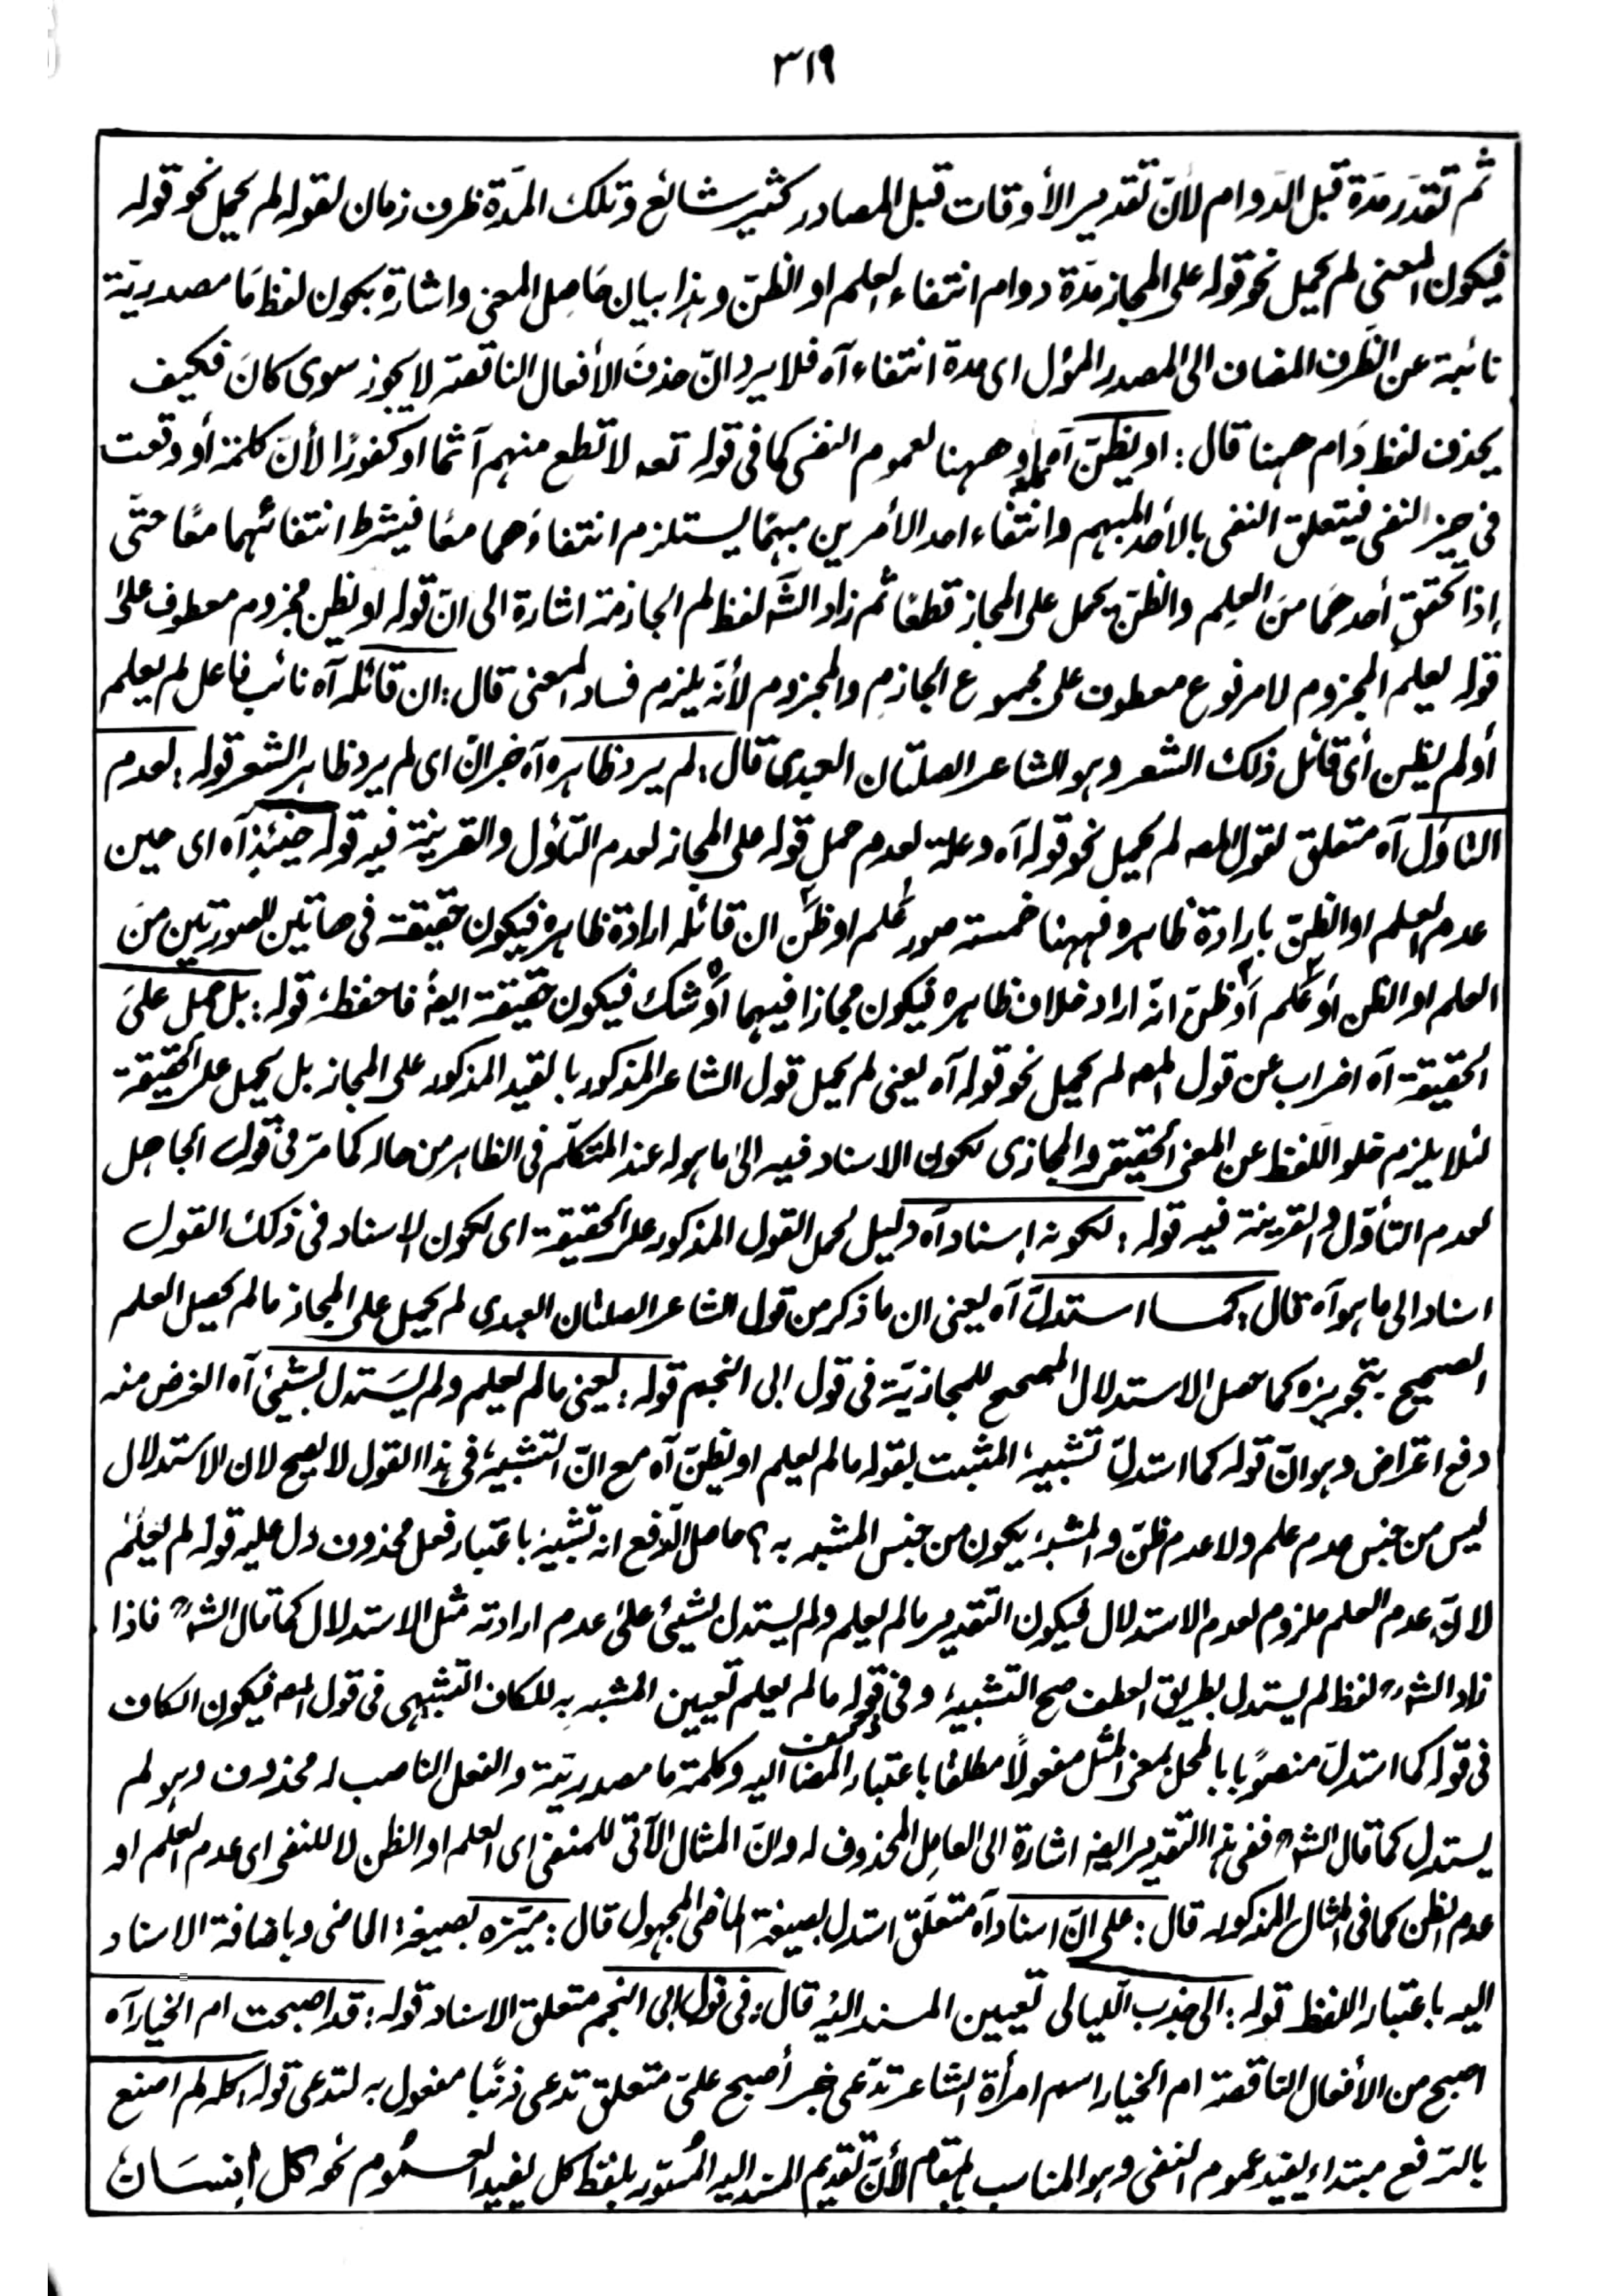 ٣١٩
ثم تقدر مدة قبل الدوام لأنّ تقدير الأوقات قبل المصادر كثير شائع وتلك المدّة ظرف زمان لقوله لم يحمل نحو قوله
فيكون المعنى لم يحمل نحو قوله على المجاز مدّة دوام انتفاء العلم او الظنّ وہذا بيان حَاصِل المعنى واشارة بكون لفظ مَا مصدريّة
نائبة عن الظَرف المضاف الى المصدر المؤل اى مدة انتفاء آہ فلا يرد انّ حذفَ الأفعال الناقصة لا يجوز سوى كانَ فكيف
يحذف لفظ دَام ههنا قال : او يظنّ آہ او ههنا لعموم النفى كما فى قولہ تعہ لا تطع منہم آثما او كفورًا لأنّ كلمة أو وقعت
فى حيز النفى فيتعلق النفى بالأحد المبهم وانتفاء احد الأمرين مبهمًا يستلزم انتفاؤهما معًا فيشترط انتفائهما معًا حتّى
إذا تحقق أحدهمَا منَ العِلم والظنّ يحمل على المجاز قطعًا ثم زاد الشہ لفظ لم الجازمة اشارة الى انّ قولہ او يظن مجزوم معطوف علىٰ
قولہ يعلم المجزوم لا مرفوع معطوف على مجموع الجازم والمجزوم لأنّه يلزم فساد المعنى قال : ان قائلہ آہ نائب فاعل لم يعلم
أو لم يظن أى قائل ذلك الشعر وہو الشاعر الصلتان العبدى قال : لم يرد ظاہرہ آہ خبر انّ اى لم يرد ظاہر الشعر قولہ : لعدم
التاوّل آہ متعلق لقول المصہ لم يحمل نحو قولہ آہ وعلة لعدم حمل قولہ على المجاز لعدم التأوّل والقرينة فيہ قولہ حينئذٍ آہ اى حين
عدم العلم او الظنّ بارادة ظاہرہ فہهنا خمسة صور عُلم او ظُنّ ان قائلہ ارادة ظاہرہ فيكون حقيقة فى هاتين الصورتين منَ
العلم او الظن أو عُلم أو ظنّ انّہ اراد خلاف ظاہرہ فيكون مجازا فيہما أو شك فيكون حقيقة ايضًا فاحفظہٗ قولہ : بل حمل علىَ
الحقيقة آہ اضراب عن قول المصہ لم يحمل نحو قولہ آہ يعنى لم يحمل قول الشاعر المذكور بالقيد المذكور على المجاز بل يحمل على الحقيقة
لئلا يلزم خلو اللّفظ عن المعنى الحقيقى والمجازى لكون الاسناد فيہ الىٰ ما ہو لہ عند المتكلّم فى الظاہر من حالہ كما مرّ فى قول الجاهل
لعدم التأوّل والقرينة فيہ قولہ : لكونہ إسناد آہ دليل لحمل القول المذكور على الحقيقة اى لكون الإسناد فى ذلك القول
اسناد الى ما ہو آہ قال : كما استدلّ آہ يعنى ان ما ذكر من قول الشاعر الصلتان العبدى لم يحمل على المجاز ما لم يحصل العلم
الصحيح بتجويزہ كما حصل الاستدلال الصحيح للمجازيّة فى قول ابى النجم قولہ : يعنى ما لم يعلم ولم يَستدل بشئٍ آہ الغرض منہ
دفع اعتراض وہو انّ قولہ كما استدلّ تشبيہ المثبت بقولہ ما لم يعلم او يظنّ آہ مع انّ التشبيہ فى ہذا القول لا يصح لان الاستدلال
ليس من جنس عدم علم ولا عدم ظنّ والمشبہ يكون من جنس المشبہ بہ ؟ حاصل الدّفع انہ تشبيہ باعتبار فعل محذوف دل عليہ قولہ لم يعلم
لانّ عدم العلم ملزوم لعدم الاستدلال فيكون التقدير ما لم يعلم ولم يستدل بشئ علىٰ عدم ارادتہ مثل الاستدلال كما قال الشہ فاذا
زاد الشہ لفظ لم يستدل بطريق العطف صح التشبيہ وفى قولہ ما لم يعلم تعيين المشبہ بہ للكاف التشبيہى فى قول المصہ فيكون الكاف
فى قولہ كما استدلّ منصوبًا بالمحل بمعنى المثل مفعولًا مطلقا باعتبار المضاف اليہ وكلمة ما مصدريّة والفعل الناصب لہ محذوف وہو لم
يستدل كما قال الشہ ففى ہذا التقدير ايضہ اشارة الى العامِل المحذوف لہ وانّ المثال الآتى للمنفى اى العلم او الظن لا للنفى اى عدم العلم او
عدم الظن كما فى المثال المذكور قال : على انّ اسناد آہ متعلّق استدل بصيغة الماضى المجہول قال : ميّزہ بصيغة الماضى وباضافة الاسناد
اليہ باعتبار اللفظ قولہ : الى جذب اللّيالى تعيين المسند اليہ قال : فى قول ابى النجم متعلق الاسناد قولہ : قد اصبحت ام الخيار آہ
اصبح من الأفعال الناقصة ام الخيار اسم امرأة الشاعر تدّعى خبر أصبح علىّ متعلق تدعى ذنبًا مفعول بہ لتدعى قولہ كلہ لم اصنع
بالرّفع مبتداء يفيد عموم النفى وہو المناسب بالمقام لأنّ تقديم المسند اليہ المُسوّر بلفظ كل يفيد العمُوم نحو كل إنسَان